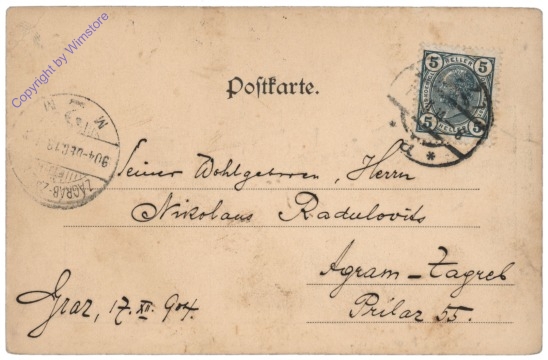 Copyright by Wimstore
5 HELLER 5
5 HELLER 5
Postkarte.
ZÁGRÁB
904-DEC.18
Seiner Wohlgeboren, Herrn
Nikolaus Radulovits
Agram-Zagreb
Prilaz 55.
Graz, 17. XII. 904.